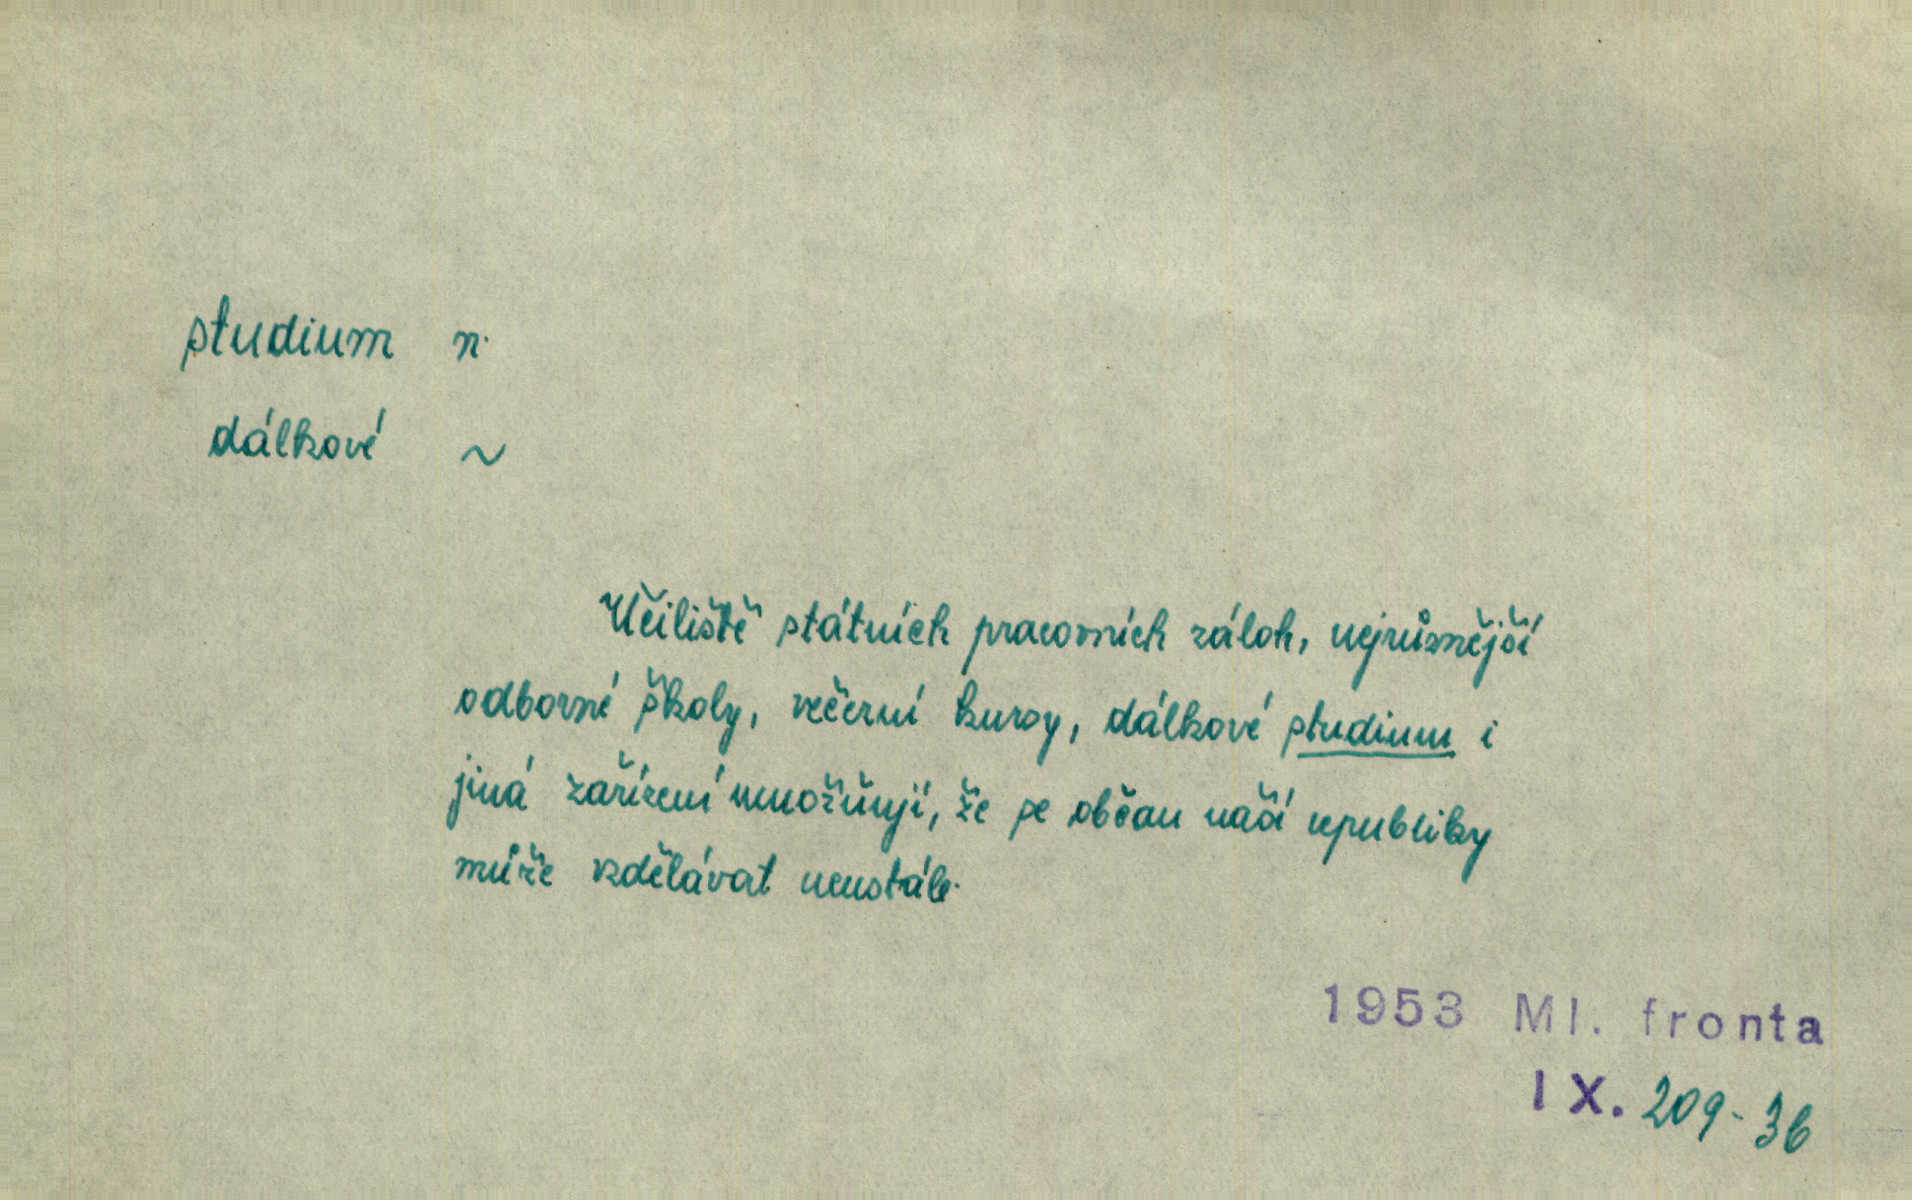 studium n.
dálkové ~
Učiliště státních pracovních záloh, nejrůznější
odborné školy, večerní kursy, dálkové studium i
jiná zařízení umožňují, že se občan naší republiky
může vzdělávat neustále.
1953 Ml. fronta
IX. 209-3b